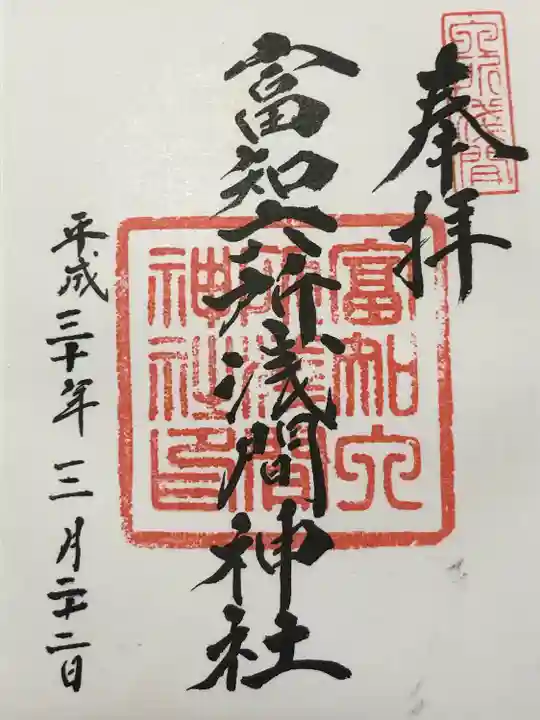 六所浅間
奉拝
富知六所浅間神社
富知六所浅間神社印
平成三十年三月二十二日